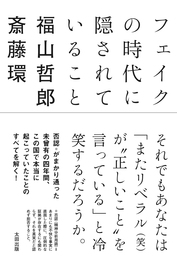 フェイク
の時代に
隠されて
いること
福山哲郎
斎藤環
それでもあなたは
「またリベラル(笑)
が“正しいこと”を
言っている」と冷
笑するだろうか。
「否認」がまかり通った
未曾有の四年間、
この国で本当に
起こっていたことの
すべてを解く!
太田出版